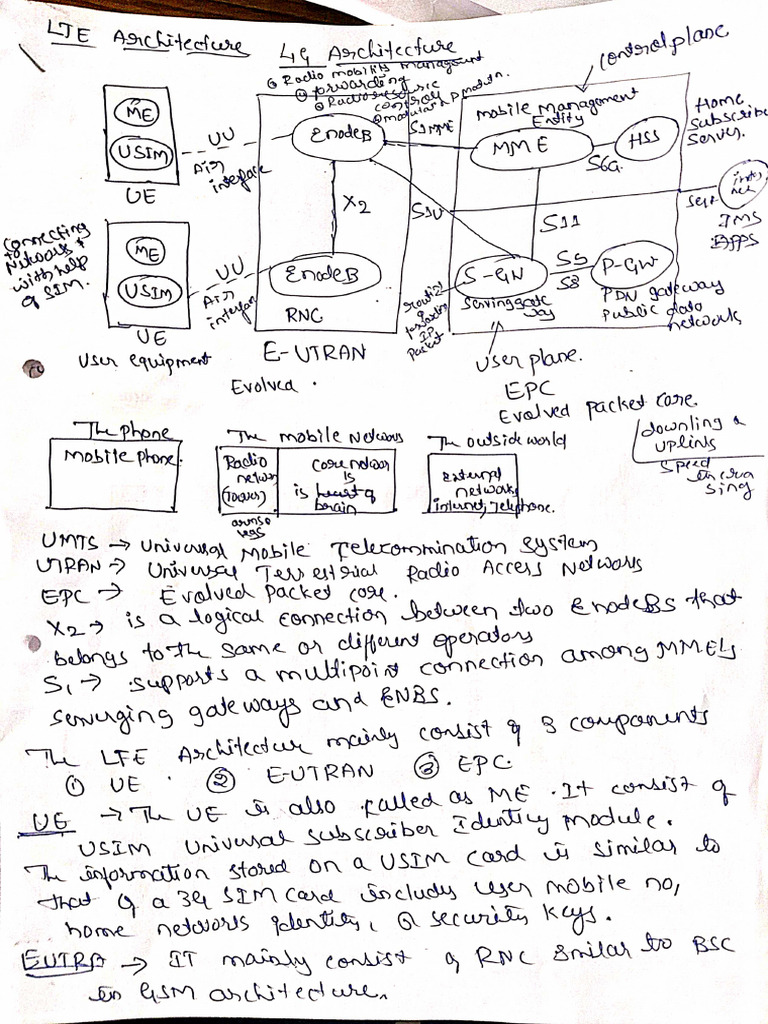 LTE Architecture 4G Architecture
① Radio mobility management
② forwarding
③ Radio resource control
④ modulation
Control plane
ME
USIM
UE
UU
Air interface
EnodeB
X2
S1MME
Mobile Management Entity
MME
S6a
HSS
Home Subscriber Server.
S1U
S11
IMS
APPS
Connecting Network with help of SIM.
ME
USIM
UE
User equipment
UU
Air
EnodeB
RNC
E-UTRAN
Evolved.
S-GW
Serving gate way
S5
S8
P-GW
PDN gateway
Public data networks
IP Packet
User plane.
EPC
Evolved Packet core.
The phone
Mobile phone.
The mobile Network
Radio networ (tower)
Core networ is heart of brain
arms & legs
The outside world
External networks, internet, telephone.
downling & uplinks
Speed
UMTS → Universal Mobile Telecommination System
UTRAN → Universal Terrestrial Radio Access Network
EPC → Evolved packet core.
X2 → is a logical connection between two EnodeBs that
belongs to the same or different operators
S1 → supports a multipoint connection among MMEs
serverging gateways and ENBS.
The LTE Architecture mainly consist of 3 components
① UE. ② E-UTRAN ③ EPC.
UE → The UE is also called as ME. It consist of
USIM Universal subscriber Identity module.
The information stored on a USIM card is similar to
that of a 3G SIM card includes user mobile no,
home network identity, & security keys.
EUTRA → IT mainly consist of RNC Smilar to BSC
in GSM architecture.